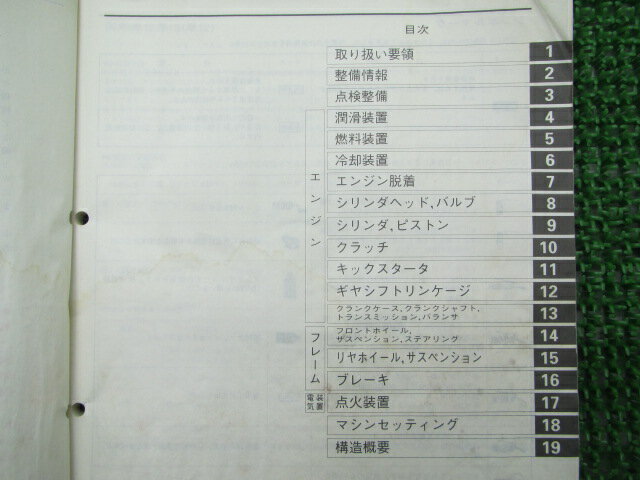 目次
取り扱い要領 1
整備情報 2
点検整備 3
エンジン
潤滑装置 4
燃料装置 5
冷却装置 6
エンジン脱着 7
シリンダヘッド,バルブ 8
シリンダ,ピストン 9
クラッチ 10
キックスタータ 11
ギヤシフトリンケージ 12
クランクケース,クランクシャフト,
トランスミッション,バランサ 13
フレーム
フロントホイール,
サスペンション,ステアリング 14
リヤホイール,サスペンション 15
ブレーキ 16
電気装置
点火装置 17
マシンセッティング 18
構造概要 19